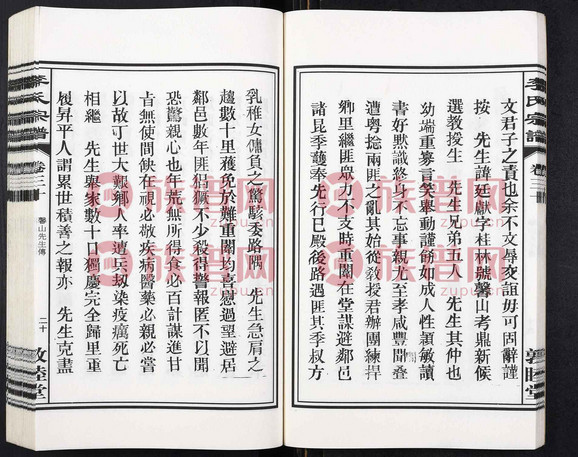 李氏宗譜
卷二十
文君子之責也余不文辱交誼毋可固辭謹
按 先生諱廷獻字桂林號馨山考鼎新候
選教授生 先生兄弟五人 先生其仲也
幼端重寡言笑舉動謹飭如成人性頴敏讀
書好默識終身不忘事親尤至孝咸豐間叠
遭粵捻兩匪之亂其始後敎授君辦團練捍
鄉里繼匪眾力不支時重闈在堂謀避鄰邑
諸昆季䕶奉先行已殿後路遇匪其季叔方
敦睦堂
乳稚女傭負之驚駭委路隅 先生急肩之
趨數十里獲免於難重闈均喜慰過望避居
鄰邑數年匪猖獗不少殺得警報匿不以聞
恐驚親心也年荒無所得食必百計謀進甘
旨無使間缺在視必敬疾病醫藥必親必嘗
以故丁世大艱鄉人率遭兵刼染疫癘死亡
相繼 先生舉家數十口獨慶完全歸里重
履昇平人謂累世積善之報亦 先生克盡
李氏宗譜
卷二十
馨山先生傳
二十
敦睦堂
族譜网
zupu.cn